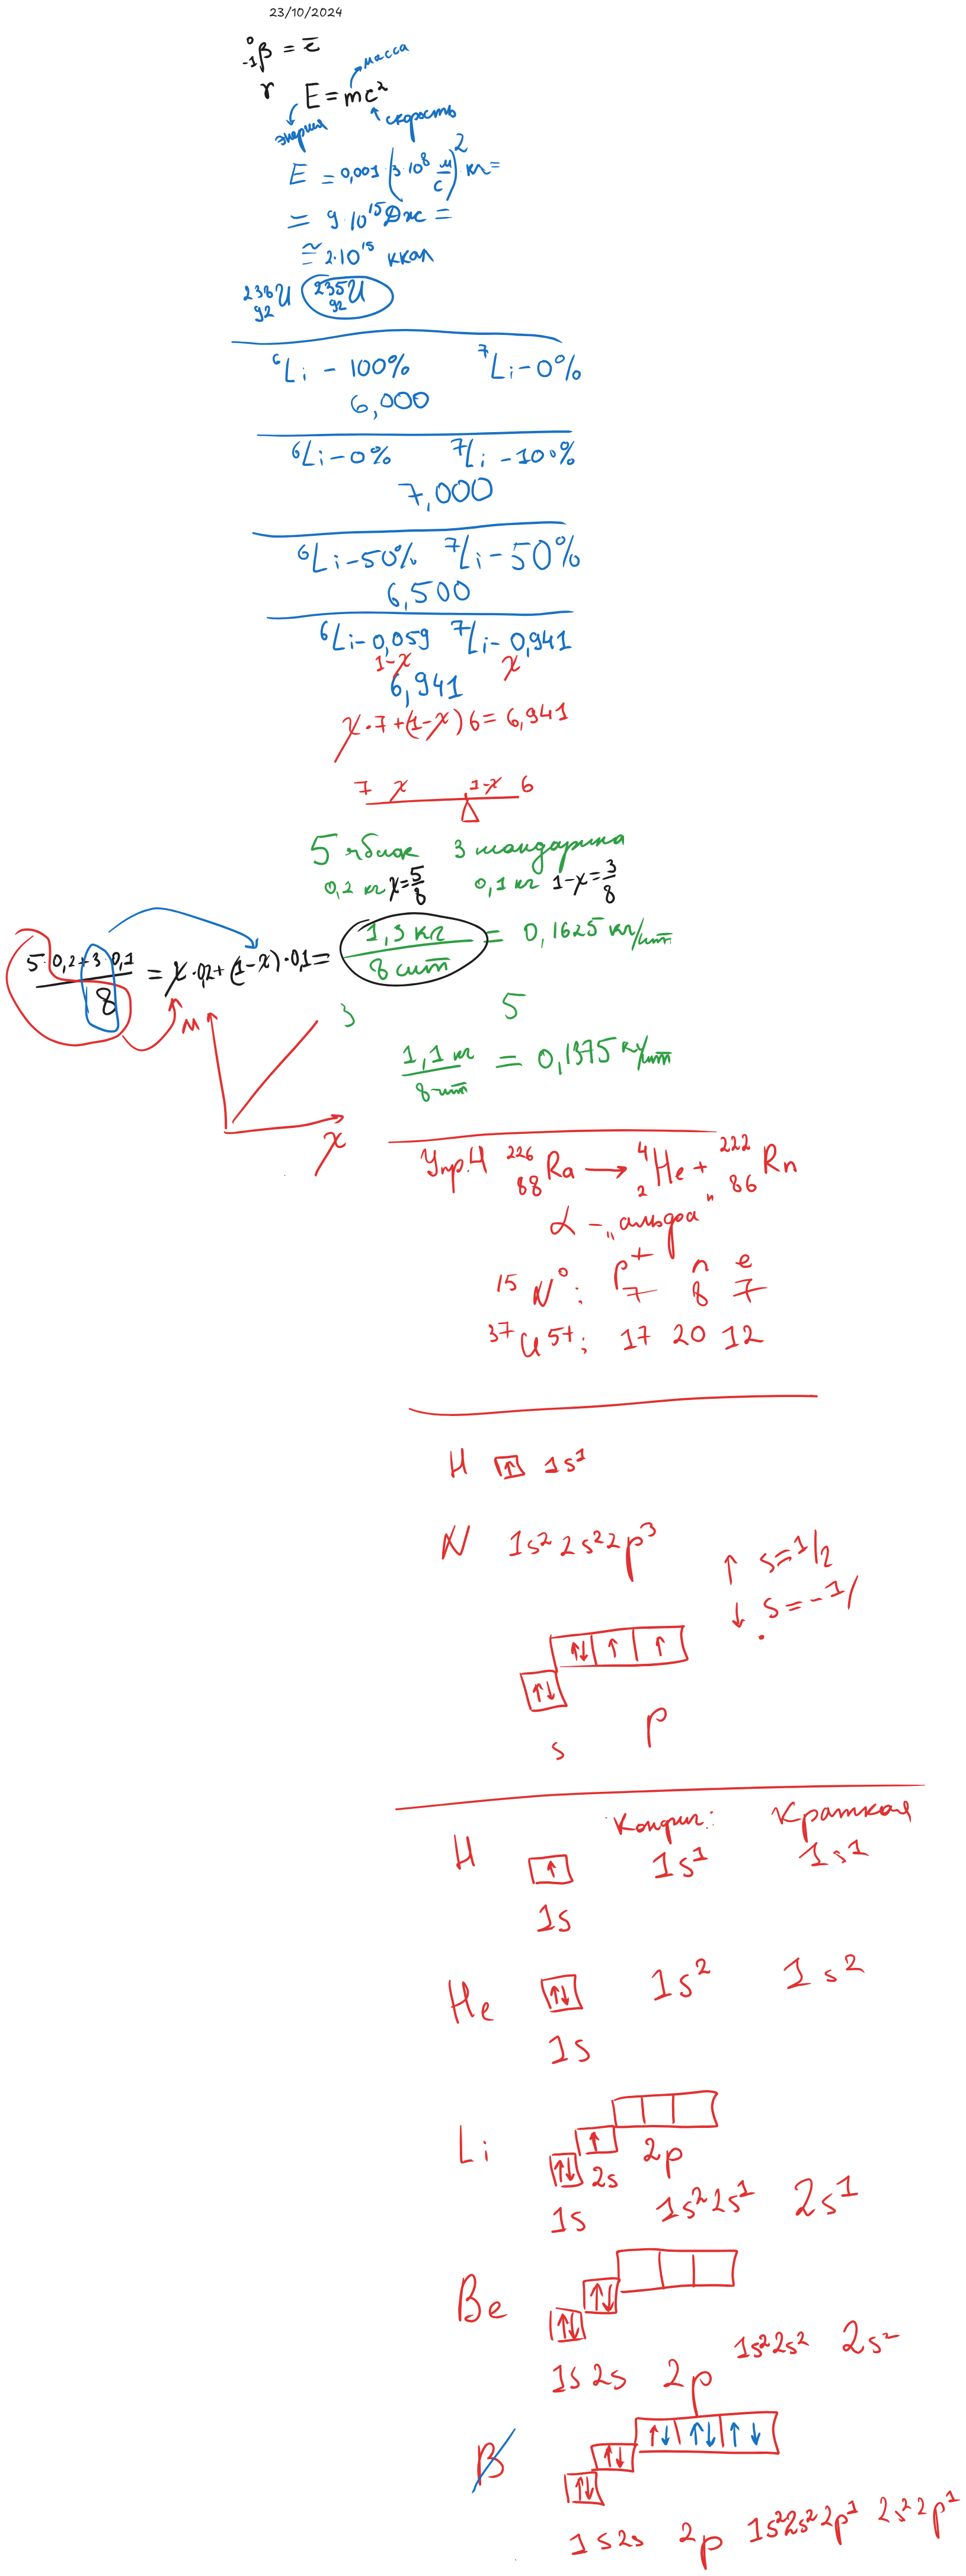 23/10/2024
⁰₋₁β = e̅
масса
γ E = mc²
энергия скорость
E = 0,001 (3·10⁸ м/с)² кг =
= 9·10¹⁵ Дж =
≅ 2·10¹⁵ ккал
²³⁸₉₂U ²³⁵₉₂U
⁶Li - 100% ⁷Li - 0%
6,000
⁶Li - 0% ⁷Li - 100%
7,000
⁶Li - 50% ⁷Li - 50%
6,500
⁶Li - 0,059 ⁷Li - 0,941
1-x x
6,941
x·7 + (1-x) 6 = 6,941
7 x 1-x 6
5 яблок 3 мандарина
0,2 кг x = 5/8 0,1 кг 1-x = 3/8
(5·0,2 + 3·0,1)/8 = x·0,2 + (1-x)·0,1 = 1,3 кг/8 шт = 0,1625 кг/шт
3 5
M
x
1,1 кг/8 шт = 0,1375 кг/шт
Упр.4 ²²⁶₈₈Ra → ⁴₂He + ²²²₈₆Rn
α - „альфа"
p⁺ n e
¹⁵N⁰: 7 8 7
³⁷Cl⁵⁺: 17 20 12
H ↑ 1s¹
N 1s² 2s² 2p³
↑ s = 1/2
↓ s = -1/
↑↓ ↑ ↑
↑↓
s p
Конфиг: Краткая
H ↑ 1s¹ 1s¹
1s
He ↑↓ 1s² 1s²
1s
Li ↑↓ ↑
1s 2s 2p 1s²2s¹ 2s¹
Be ↑↓ ↑↓
1s 2s 2p 1s²2s² 2s²
B ↑↓ ↑↓ ↑↓ ↑↓ ↑↓
1s 2s 2p 1s²2s²2p¹ 2s²2p¹